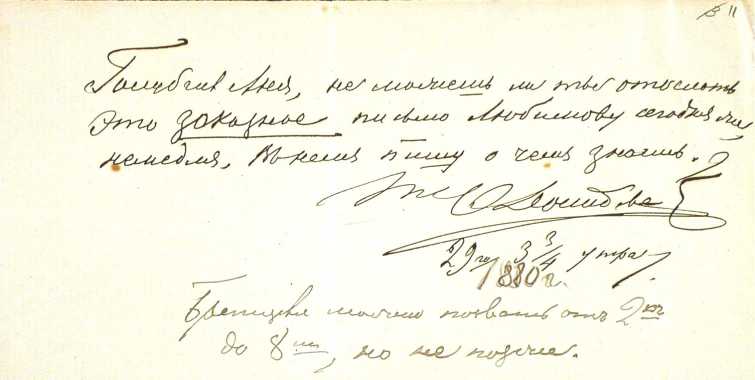 11
Голубчик Аня, не можешь ли ты отослать
это заказное письмо Любимову сегодня же,
немедля, въ немъ пишу о чемъ знаешь.
Ф Достоевс
29го 3 3/4 утра
1880 г.
можно позвать отъ 2хъ
до 8ми, но не позже.